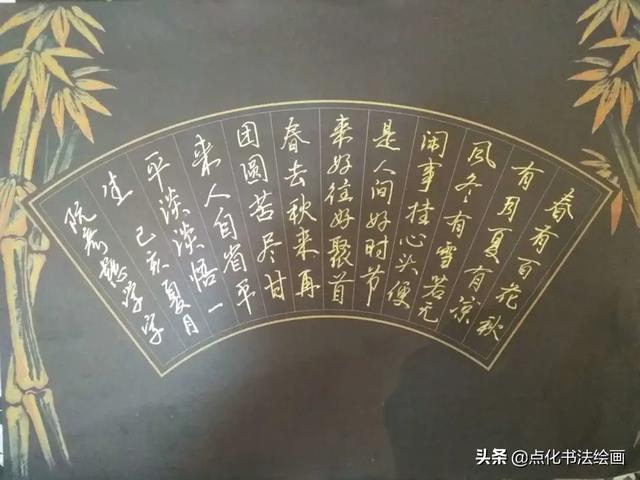 春有百花秋
有月夏有凉
風冬有雪若无
闲事挂心头便
是人间好时节
来好往好聚首
春去秋来再
团圆苦尽甘
来人自省平
平淡淡悟一
生 己亥夏月
阮学字
头条 @点化书法绘画